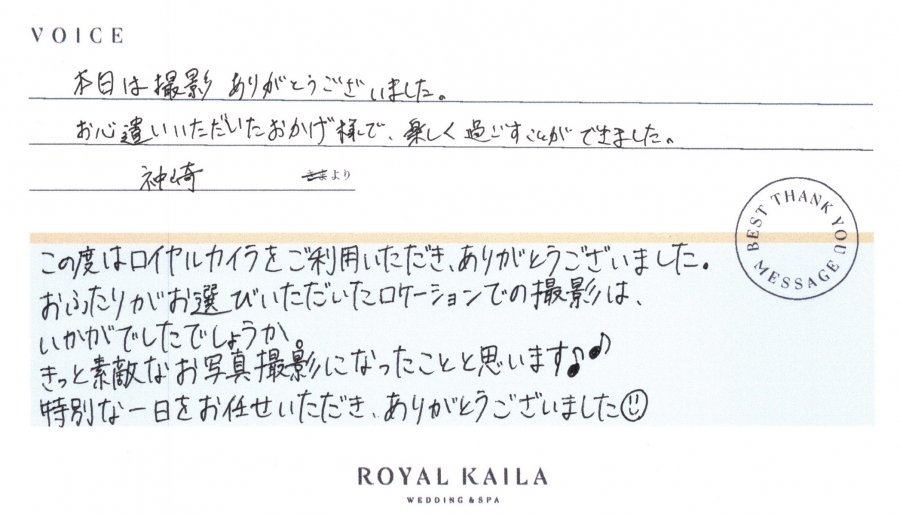 VOICE
本日は撮影ありがとうございました。
お心遣いいただいたおかげ様で、楽しく過ごすことができました。
神崎 さまより
BEST THANK YOU MESSAGE
この度はロイヤルカイラをご利用いただき、ありがとうございました。
おふたりがお選びいただいたロケーションでの撮影は、
いかがでしたでしょうか。
きっと素敵なお写真撮影になったことと思います♪♪
特別な一日をお任せいただき、ありがとうございました☺
ROYAL KAILA
WEDDING & SPA